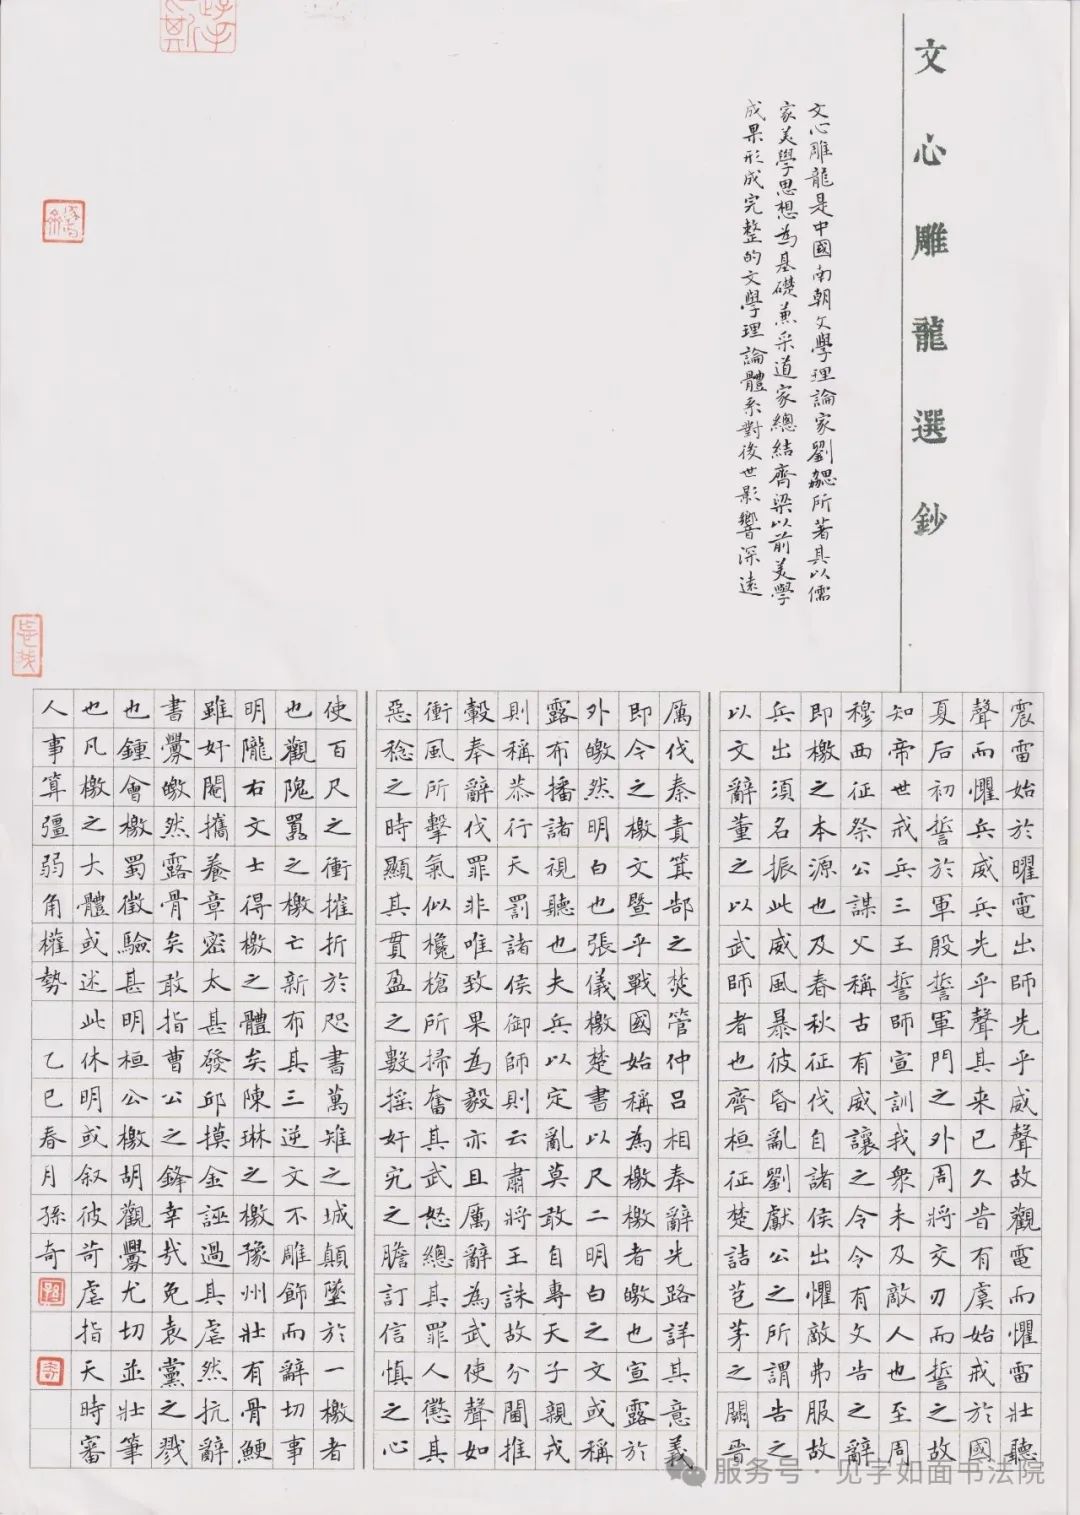 文心雕龍選鈔
文心雕龍是中國南朝文學理論家劉勰所著其以儒
家美學思想為基礎兼采道家總結齊梁以前美學
成果形成完整的文學理論體系對後世影響深遠
震雷始於曜電出師先乎威聲故觀電而懼雷壯聽
聲而懼兵威兵先乎聲其来已久昔有虞始戒於國
夏后初誓於軍殷誓軍門之外周將交刃而誓之故
知帝世戒兵三王誓師宣訓我衆未及敵人也至周
穆西征祭公謀父稱古有威讓之令令有文告之辭
即檄之本源也及春秋征伐自諸侯出懼敵弗服故
兵出須名振此威風暴彼昏亂劉獻公之所謂告之
以文辭董之以武師者也齊桓征楚詰苞茅之闕晉
厲伐秦責箕郜之焚管仲呂相奉辭先路詳其意義
即今之檄文暨乎戰國始稱為檄檄者皦也宣露於
外皦然明白也張儀檄楚書以尺二明白之文或稱
露布播諸視聽也夫兵以定亂莫敢自專天子親戎
則稱恭行天罰諸侯御師則云肅將王誅故分閫推
轂奉辭伐罪非唯致果為毅亦且厲辭為武使聲如
衝風所擊氣似欃槍所掃奮其武怒總其罪人懲其
惡稔之時顯其貫盈之數搖奸宄之膽訂信慎之心
使百尺之衝摧折於咫書萬雉之城顛墜於一檄者
也觀隗囂之檄亡新布其三逆文不雕飾而辭切事
明隴右文士得檄之體矣陳琳之檄豫州壯有骨鯁
雖奸閹攜養章密太甚發邱摸金誣過其虐然抗辭
書釁皦然露骨矣敢指曹公之鋒幸哉免袁黨之戮
也鍾會檄蜀徵驗甚明桓公檄胡觀釁尤切並壯筆
也凡檄之大體或述此休明或叙彼苛虐指天時審
人事算彊弱角權勢 乙巳春月孫奇
服务号·见字如面书法院